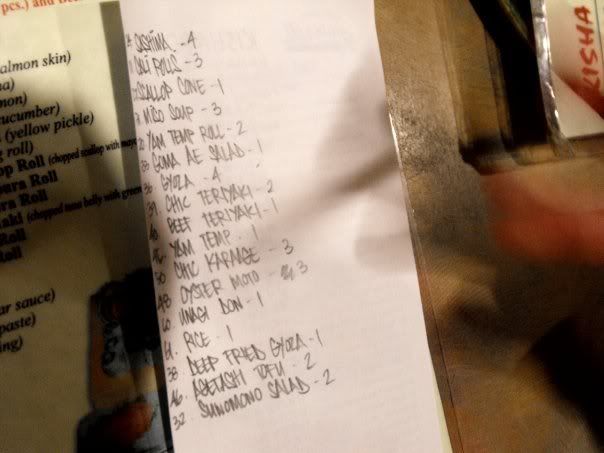 pcs.) and Be
almon skin)
na)
mon)
cucumber)
(yellow pickle)
ng roll)
op Roll (chopped scallop with mayo
pura Roll
ra Roll
aki (chopped tuna belly with green
Roll
Roll
ar sauce)
paste)
ing)
SASHIMI - 4
CALI ROLLS - 3
SCALLOP CONE - 1
MISO SOUP - 3
YAM TEMP ROLL - 2
GOMA AE SALAD - 1
36. GYOZA - 4
39. CHIC TERIYAKI - 2
40. BEEF TERIYAKI - 1
YAM TEMP - 1
50. CHIC KARAAGE - 3
48. OYSTER MOTO - 3
60. UNAGI DON - 1
61. RICE - 1
38. DEEP FRIED GYOZA - 1
46. AGETASHI TOFU - 2
32. SUNOMONO SALAD - 2
KISHA